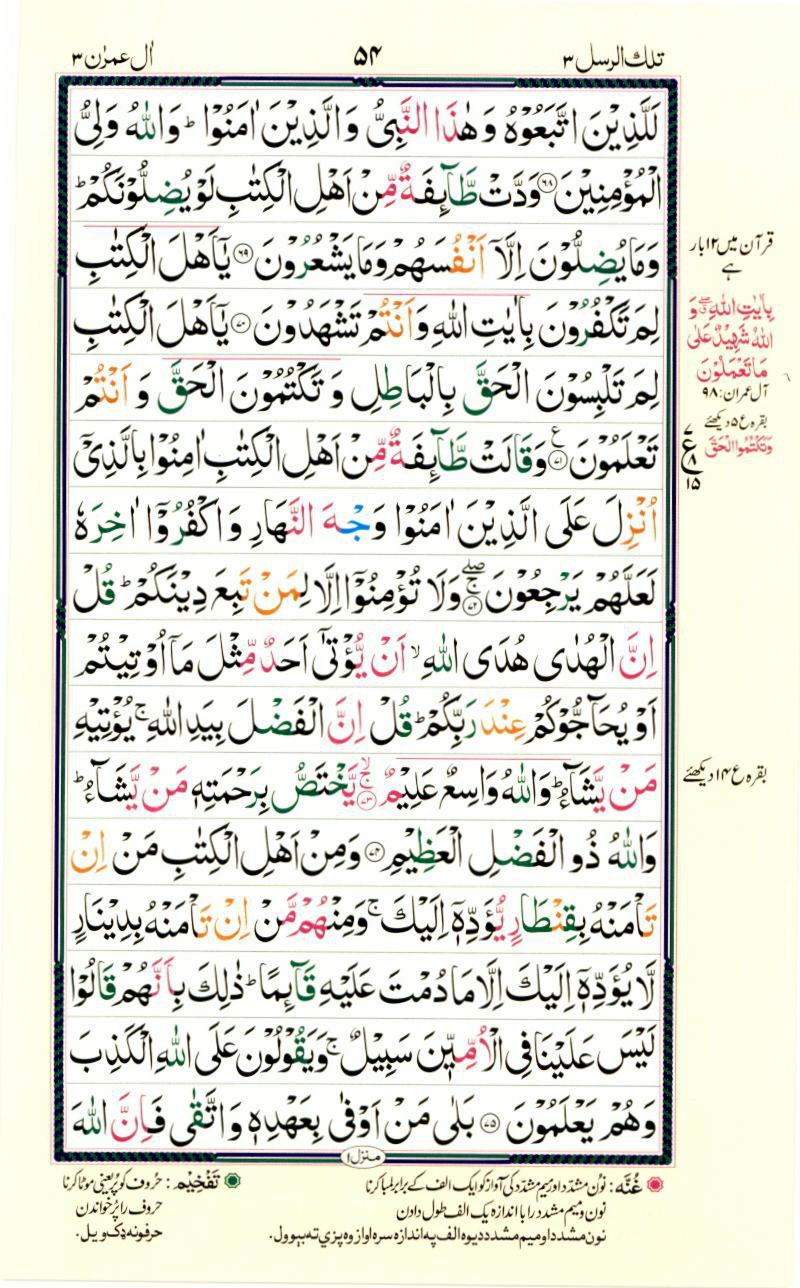 تلك الرسل ٣
٥٤
اٰل عمرٰن ٣
لَلَّذِيْنَ اتَّبَعُوْهُ وَهٰذَا النَّبِىُّ وَالَّذِيْنَ اٰمَنُوْا ؕ وَاللّٰهُ وَلِىُّ
الْمُؤْمِنِيْنَ ﴿۶۸﴾ وَدَّتْ طَّآئِفَةٌ مِّنْ اَهْلِ الْكِتٰبِ لَوْ يُضِلُّوْنَكُمْ ؕ
وَمَا يُضِلُّوْنَ اِلَّاۤ اَنْفُسَهُمْ وَمَا يَشْعُرُوْنَ ﴿۶۹﴾ يٰۤاَهْلَ الْكِتٰبِ
لِمَ تَكْفُرُوْنَ بِاٰيٰتِ اللّٰهِ وَاَنْتُمْ تَشْهَدُوْنَ ﴿۷۰﴾ يٰۤاَهْلَ الْكِتٰبِ
لِمَ تَلْبِسُوْنَ الْحَقَّ بِالْبَاطِلِ وَتَكْتُمُوْنَ الْحَقَّ وَاَنْتُمْ
تَعْلَمُوْنَ ﴿۷۱﴾ ع وَقَالَتْ طَّآئِفَةٌ مِّنْ اَهْلِ الْكِتٰبِ اٰمِنُوْا بِالَّذِىْۤ
اُنْزِلَ عَلَى الَّذِيْنَ اٰمَنُوْا وَجْهَ النَّهَارِ وَاكْفُرُوْۤا اٰخِرَهٗ
لَعَلَّهُمْ يَرْجِعُوْنَ ﴿۷۲﴾ ۖۚ وَلَا تُؤْمِنُوْۤا اِلَّا لِمَنْ تَبِعَ دِيْنَكُمْ ؕ قُلْ
اِنَّ الْهُدٰى هُدَى اللّٰهِ ۙ اَنْ يُّؤْتٰٓى اَحَدٌ مِّثْلَ مَاۤ اُوْتِيْتُمْ
اَوْ يُحَآجُّوْكُمْ عِنْدَ رَبِّكُمْ ؕ قُلْ اِنَّ الْفَضْلَ بِيَدِ اللّٰهِ ۚ يُؤْتِيْهِ
مَنْ يَّشَآءُ ؕ وَاللّٰهُ وَاسِعٌ عَلِيْمٌ ﴿۷۳﴾ ۙۚ يَّخْتَصُّ بِرَحْمَتِهٖ مَنْ يَّشَآءُ ؕ
وَاللّٰهُ ذُو الْفَضْلِ الْعَظِيْمِ ﴿۷۴﴾ وَمِنْ اَهْلِ الْكِتٰبِ مَنْ اِنْ
تَاْمَنْهُ بِقِنْطَارٍ يُّؤَدِّهٖۤ اِلَيْكَ ۚ وَمِنْهُمْ مَّنْ اِنْ تَاْمَنْهُ بِدِيْنَارٍ
لَّا يُؤَدِّهٖۤ اِلَيْكَ اِلَّا مَا دُمْتَ عَلَيْهِ قَآئِمًا ؕ ذٰلِكَ بِاَنَّهُمْ قَالُوْا
لَيْسَ عَلَيْنَا فِى الْاُمِّيّٖنَ سَبِيْلٌ ۚ وَيَقُوْلُوْنَ عَلَى اللّٰهِ الْكَذِبَ
وَهُمْ يَعْلَمُوْنَ ﴿۷۵﴾ بَلٰى مَنْ اَوْفٰى بِعَهْدِهٖ وَاتَّقٰى فَاِنَّ اللّٰهَ
منزل ۱
قرآن میں ۱۲ بار
ہے
بِاٰيٰتِ اللّٰهِ ۖۗ وَ
اللّٰهُ شَهِيْدٌ عَلٰى
مَا تَعْمَلُوْنَ
آل عمران: ۹۸
بقرہ ع ۵ دیکھئے
وَتَكْتُمُوا الْحَقَّ
ع
۸
۱۵
بقرہ ع ۱۴ دیکھئے
غُنَّه: نون مشدد اور میم مشدد کی آواز کو ایک الف کے برابر لمبا کرنا
نون و میم مشدد را با اندازہ یک الف طول دادن
نون مشدد او میم مشدد دیوہ الف په اندازه سره اواز وه پزي ته بېوول.
تَفْخِيْم: حروف کو پُر یعنی موٹا کرنا
حروف را پُر خواندن
حرفونه ډک ویل.